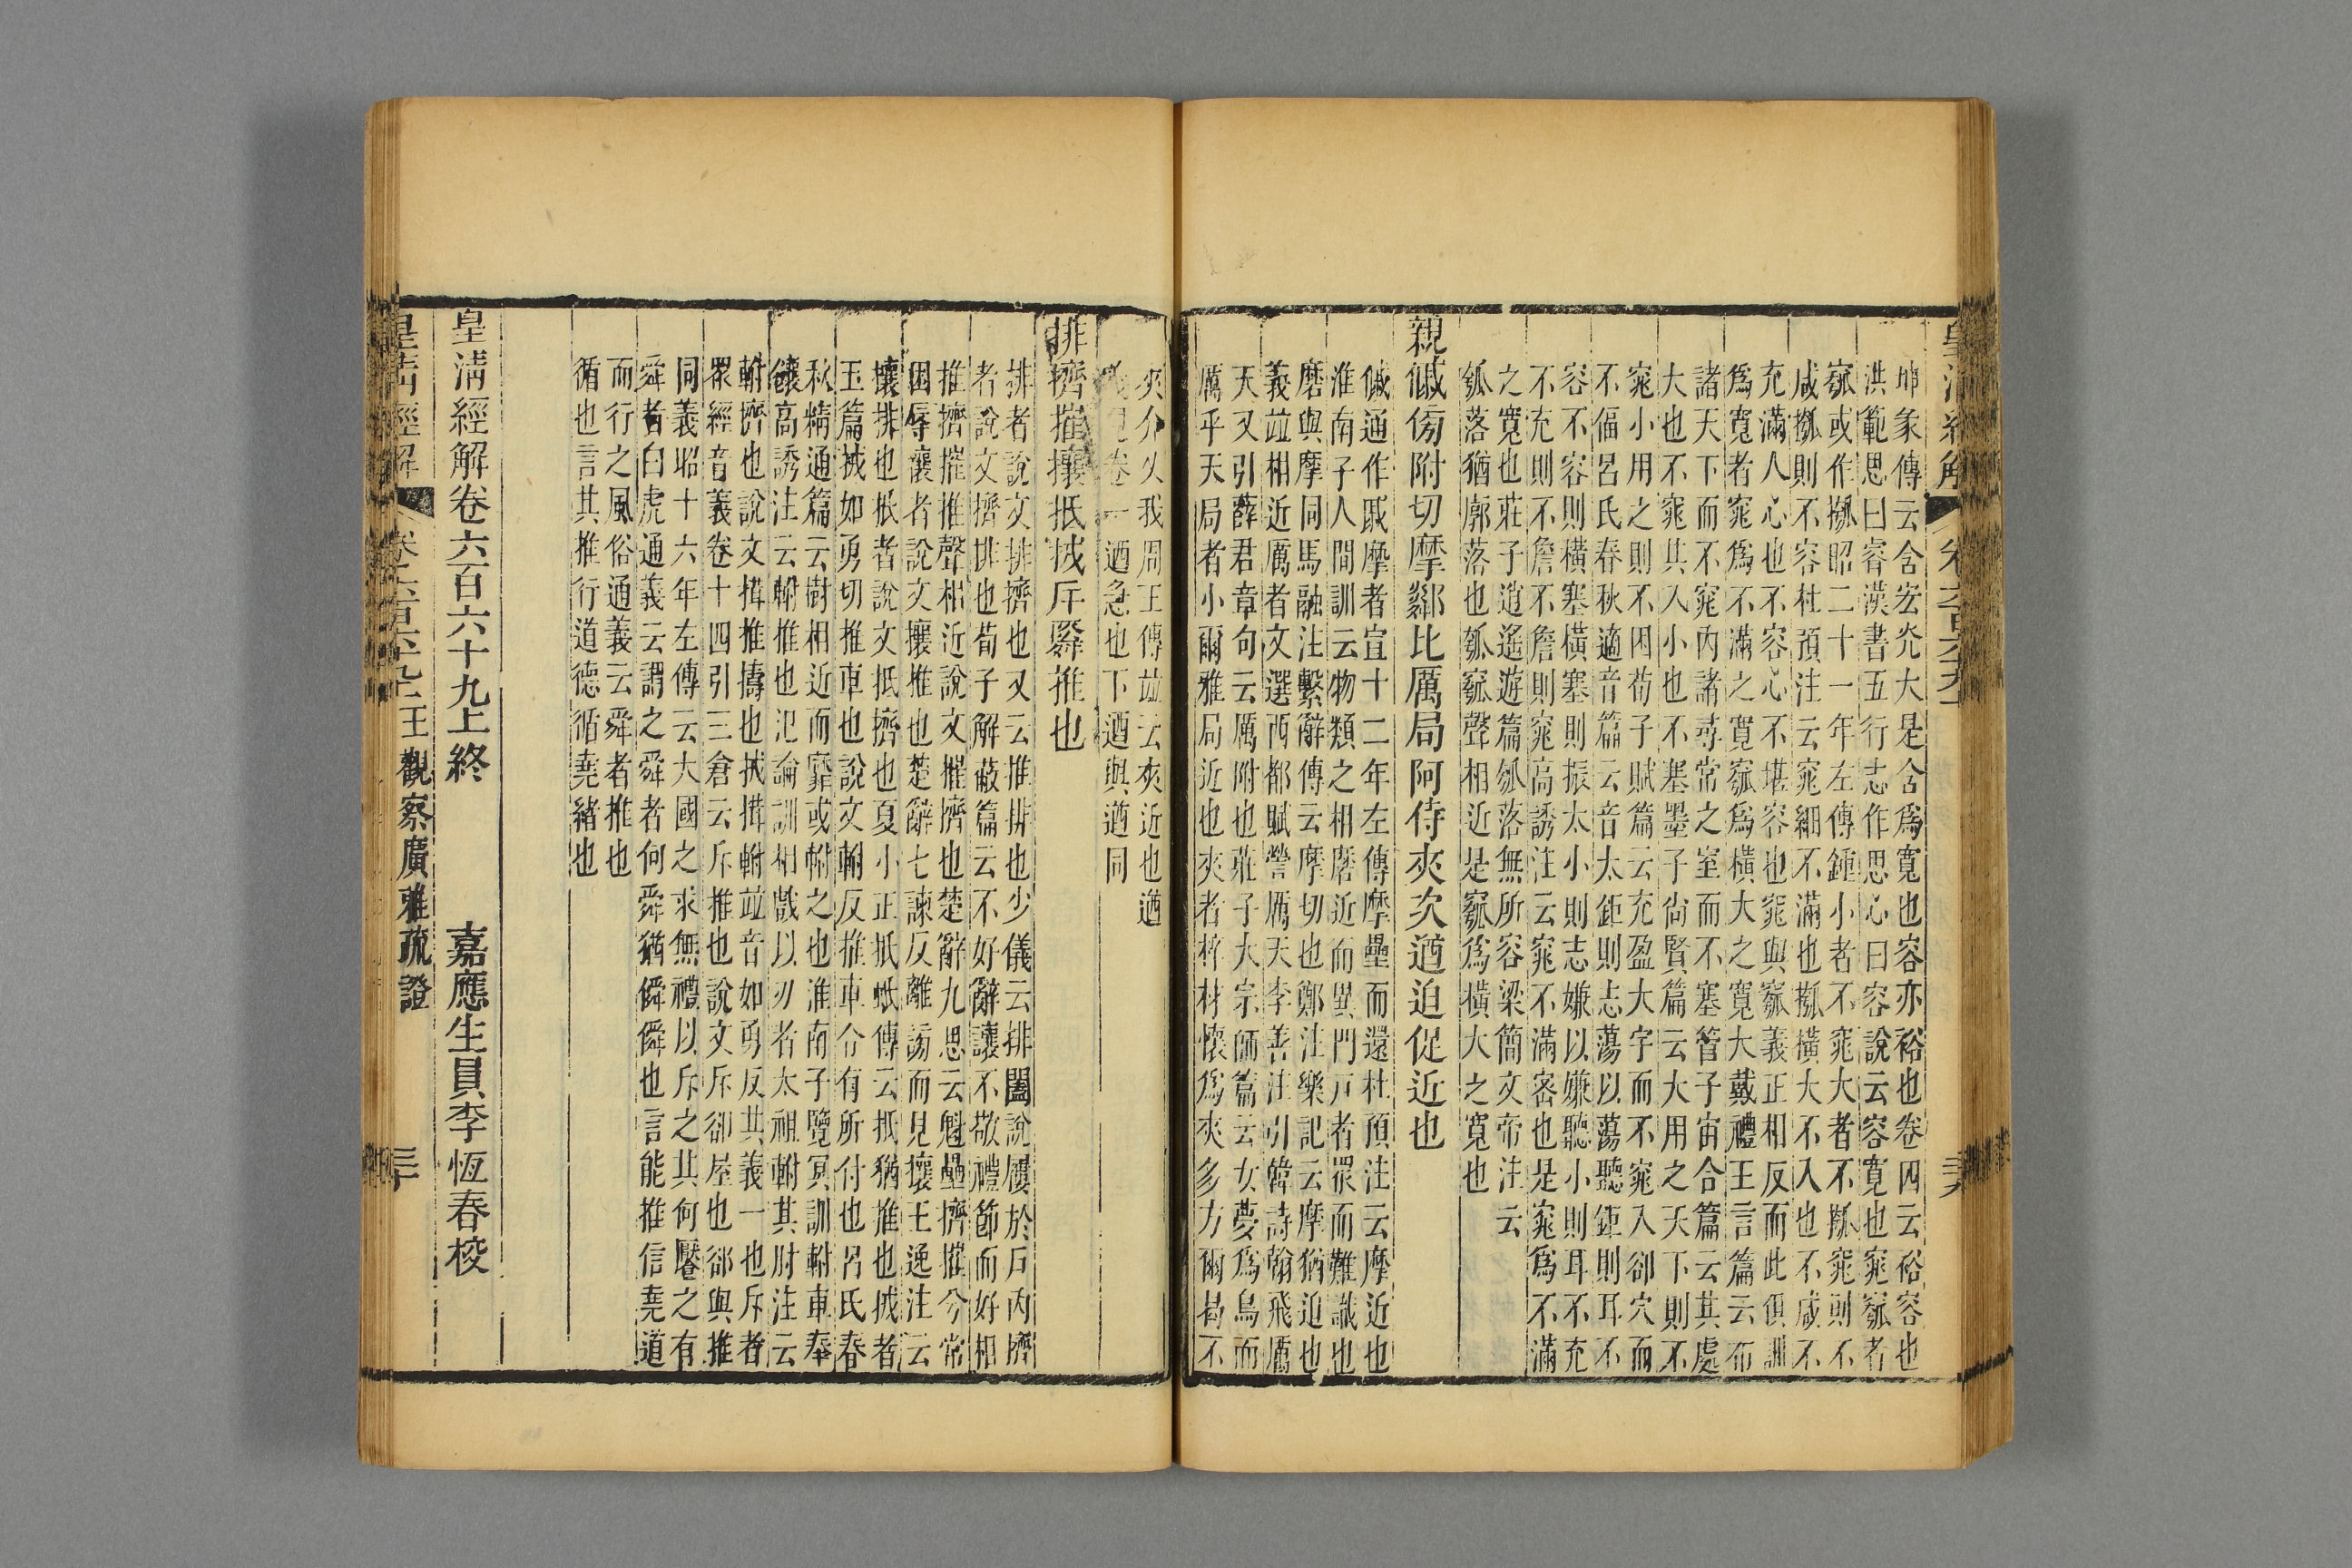 坤象傳云含宏光大是含爲寬也容亦裕也卷四云裕容也
洪範思曰睿漢書五行志作思心曰容說云容寬也窕窳者
窳或作摦昭二十一年左傳鍾小者不窕大者不摦窕則不
咸摦則不容杜預注云窕細不滿也摦橫大不入也不咸不
充滿人心也不容心不堪容也窕與窳義正相反而此俱訓
爲寬者窕爲不滿之寬窳爲橫大之寬大戴禮王言篇云布
諸天下而不窕內諸尋常之室而不塞管子宙合篇云其處
大也不窕其入小也不塞墨子尙賢篇云大用之天下則不
窕小用之則不困荀子賦篇云充盈大宇而不窕入郤穴而
不偪呂氏春秋適音篇云音太鉅則志蕩以蕩聽鉅則耳不
容不容則橫塞橫塞則振太小則志嫌以嫌聽小則耳不充
不充則不詹不詹則窕高誘注云窕不滿密也是窕爲不滿
之寬也莊子逍遙遊篇瓠落無所容梁簡文帝注云
瓠落猶廓落也瓠窳聲相近是窳爲橫大之寬也
親傶傍附切摩鄰比厲局阿侍夾次遒迫促近也
傶通作戚摩者宣十二年左傳摩壘而還杜預注云摩近也
淮南子人間訓云物類之相磨近而異門戸者眾而難識也
磨與摩同馬融注繫辭傳云摩切也鄭注樂記云摩猶迫也
義竝相近厲者文選西都賦營厲天李善注引韓詩翰飛厲
天又引薛君章句云厲附也莊子大宗師篇云女夢爲鳥而
厲乎天局者小爾雅局近也夾者梓材懷爲夾多方爾曷不
夾介乂我周王傳竝云夾近也遒
義見卷一遒急也下遒與遒同
排擠摧攘抵㧞斥䠠推也
排者說文排擠也又云推排也少儀云排闔說屨於戸內擠
者說文擠排也荀子解蔽篇云不好辭讓不敬禮節而好相
推擠摧推聲相近說文摧擠也楚辭九思云魁壘擠摧兮常
困辱攘者說文攘推也楚辭七諫反離謗而見攘王逸注云
攘排也抵者說文抵擠也夏小正抵蚳傳云抵猶推也㧞者
玉篇㧞如勇切推車也說文軵反推車令有所付也呂氏春
秋精通篇云樹相近而靡或軵之也淮南子覽冥訓軵車奉
饟高誘注云軵推也氾論訓相戲以刃者太祖軵其肘注云
軵擠也說文搑推擣也㧞搑軵竝音如勇反其義一也斥者
眾經音義卷十四引三倉云斥推也說文斥卻屋也郤與推
同義昭十六年左傳云大國之求無禮以斥之其何饜之有
舜者白虎通義云謂之舜者何舜猶僢僢也言能推信堯道
而行之風俗通義云舜者推也
循也言其推行道德循堯緒也
皇清經解卷六百六十九上終　嘉應生員李恆春校
皇清經解　卷六百六十九上　王觀察廣雅疏證　三十